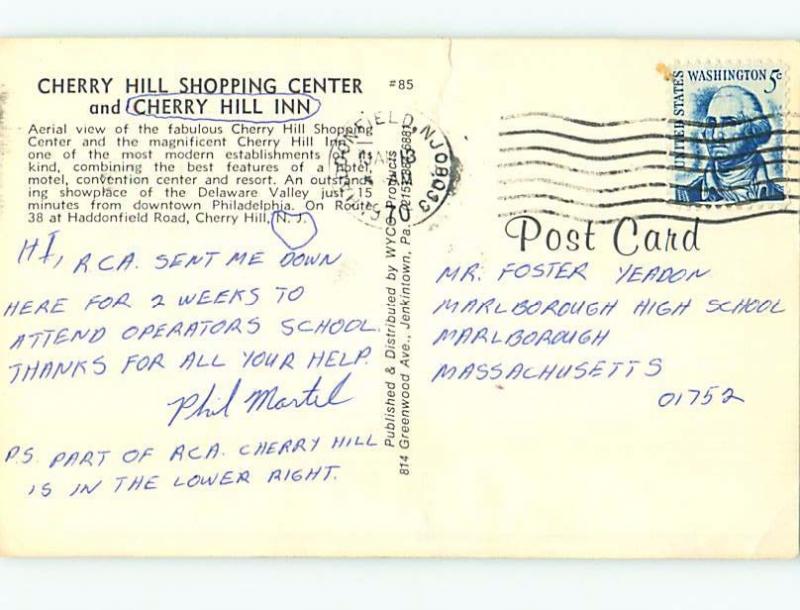 CHERRY HILL SHOPPING CENTER
and CHERRY HILL INN
#85
Aerial view of the fabulous Cherry Hill Shopping
Center and the magnificent Cherry Hill Inn,
one of the most modern establishments of its
kind, combining the best features of a hotel,
motel, convention center and resort. An outstand-
ing showplace of the Delaware Valley just 15
minutes from downtown Philadelphia. On Route
38 at Haddonfield Road, Cherry Hill, N. J.
HI, RCA. SENT ME DOWN
HERE FOR 2 WEEKS TO
ATTEND OPERATORS SCHOOL.
THANKS FOR ALL YOUR HELP.
Phil Martel
P.S. PART OF RCA. CHERRY HILL
IS IN THE LOWER RIGHT.
Published & Distributed by WYCO Products
814 Greenwood Ave., Jenkintown, Pa.
NJ 08033
UNITED STATES
WASHINGTON 5c
Post Card
MR. FOSTER YEADON
MARLBOROUGH HIGH SCHOOL
MARLBOROUGH
MASSACHUSETTS
01752